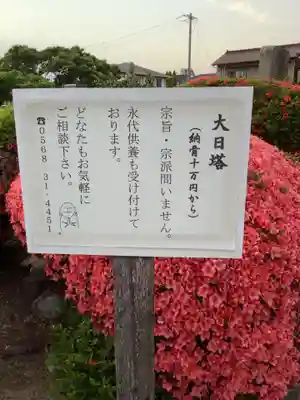 大日塔
(納骨十万円から)
宗旨・宗派問いません。
永代供養も受け付けて
おります。
どなたもお気軽に
ご相談下さい。
☎0568 31.4451